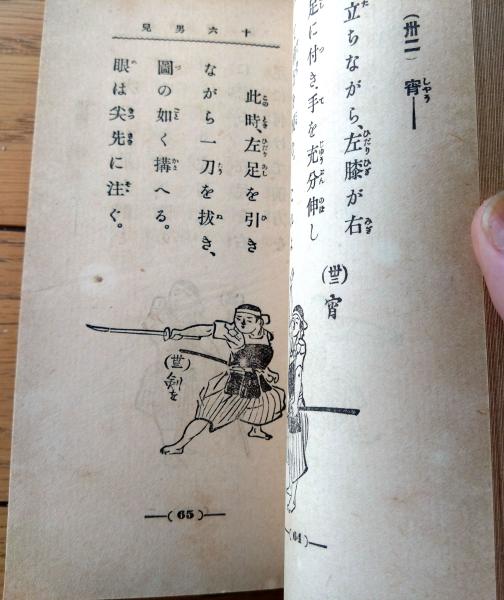 (卅二) 宵―
立ちながら、左膝が右
足に付き、手を充分伸し
(卅二) 宵
―(64)―
十六男兒
此時、左足を引き
ながら一刀を拔き、
圖の如く搆へる。
眼は尖先に注ぐ。
(卅三) 劍を
―(65)―